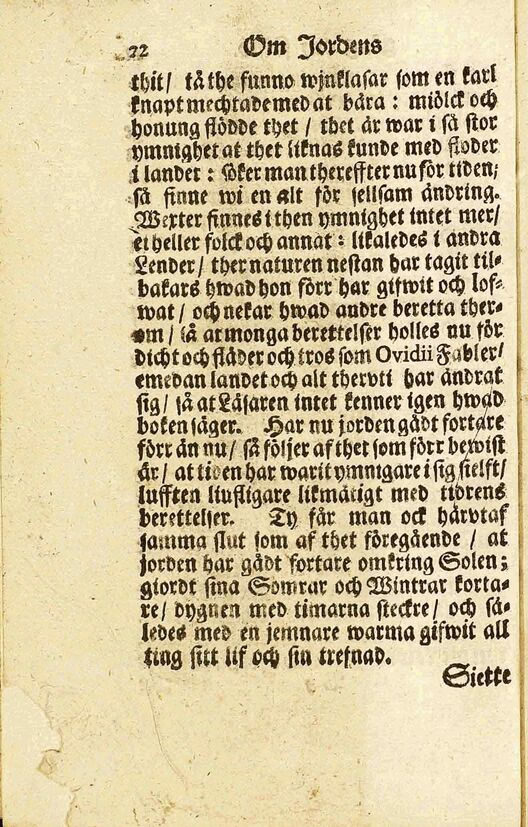 22 Om Jordens
thit/ tå the funno wjnklasar som en karl
knapt mechtade med at bära: miölck och
honung flödde thet/ thet är war i så stor
ymnighet at thet liknas kunde med floder
i landet: söker man thereffter nu för tiden,
så finne wi en alt för sellsam ändring.
Wexter finnes i then ymnighet intet mer/
ei heller folck och annat: likaledes i andra
Lender/ ther naturen nestan har tagit til-
bakars hwad hon förr har gifwit och lof-
wat/ och nekar hwad andre beretta ther-
om/ så at monga berettelser holles nu för
dicht och fläder och tros som Ovidii Fabler/
emedan landet och alt theruti har ändrat
sig/ så at Läsaren intet kenner igen hwad
boken säger. Har nu jorden gådt fortare
förr än nu/ så följer af thet som förr bewist
är/ at tiden har warit ymnigare i sig sielft/
lufften liufligare likmätigt med tidrens
berettelser. Ty får man ock härutaf
samma slut som af thet föregäende/ at
jorden har gådt fortare omkring Solen;
giordt sina Somrar och Wintrar korta-
re/ dygnen med timarna steckre/ och så-
ledes med en jemnare warma gifwit all
ting sitt lif och sin trefnad.
Siette